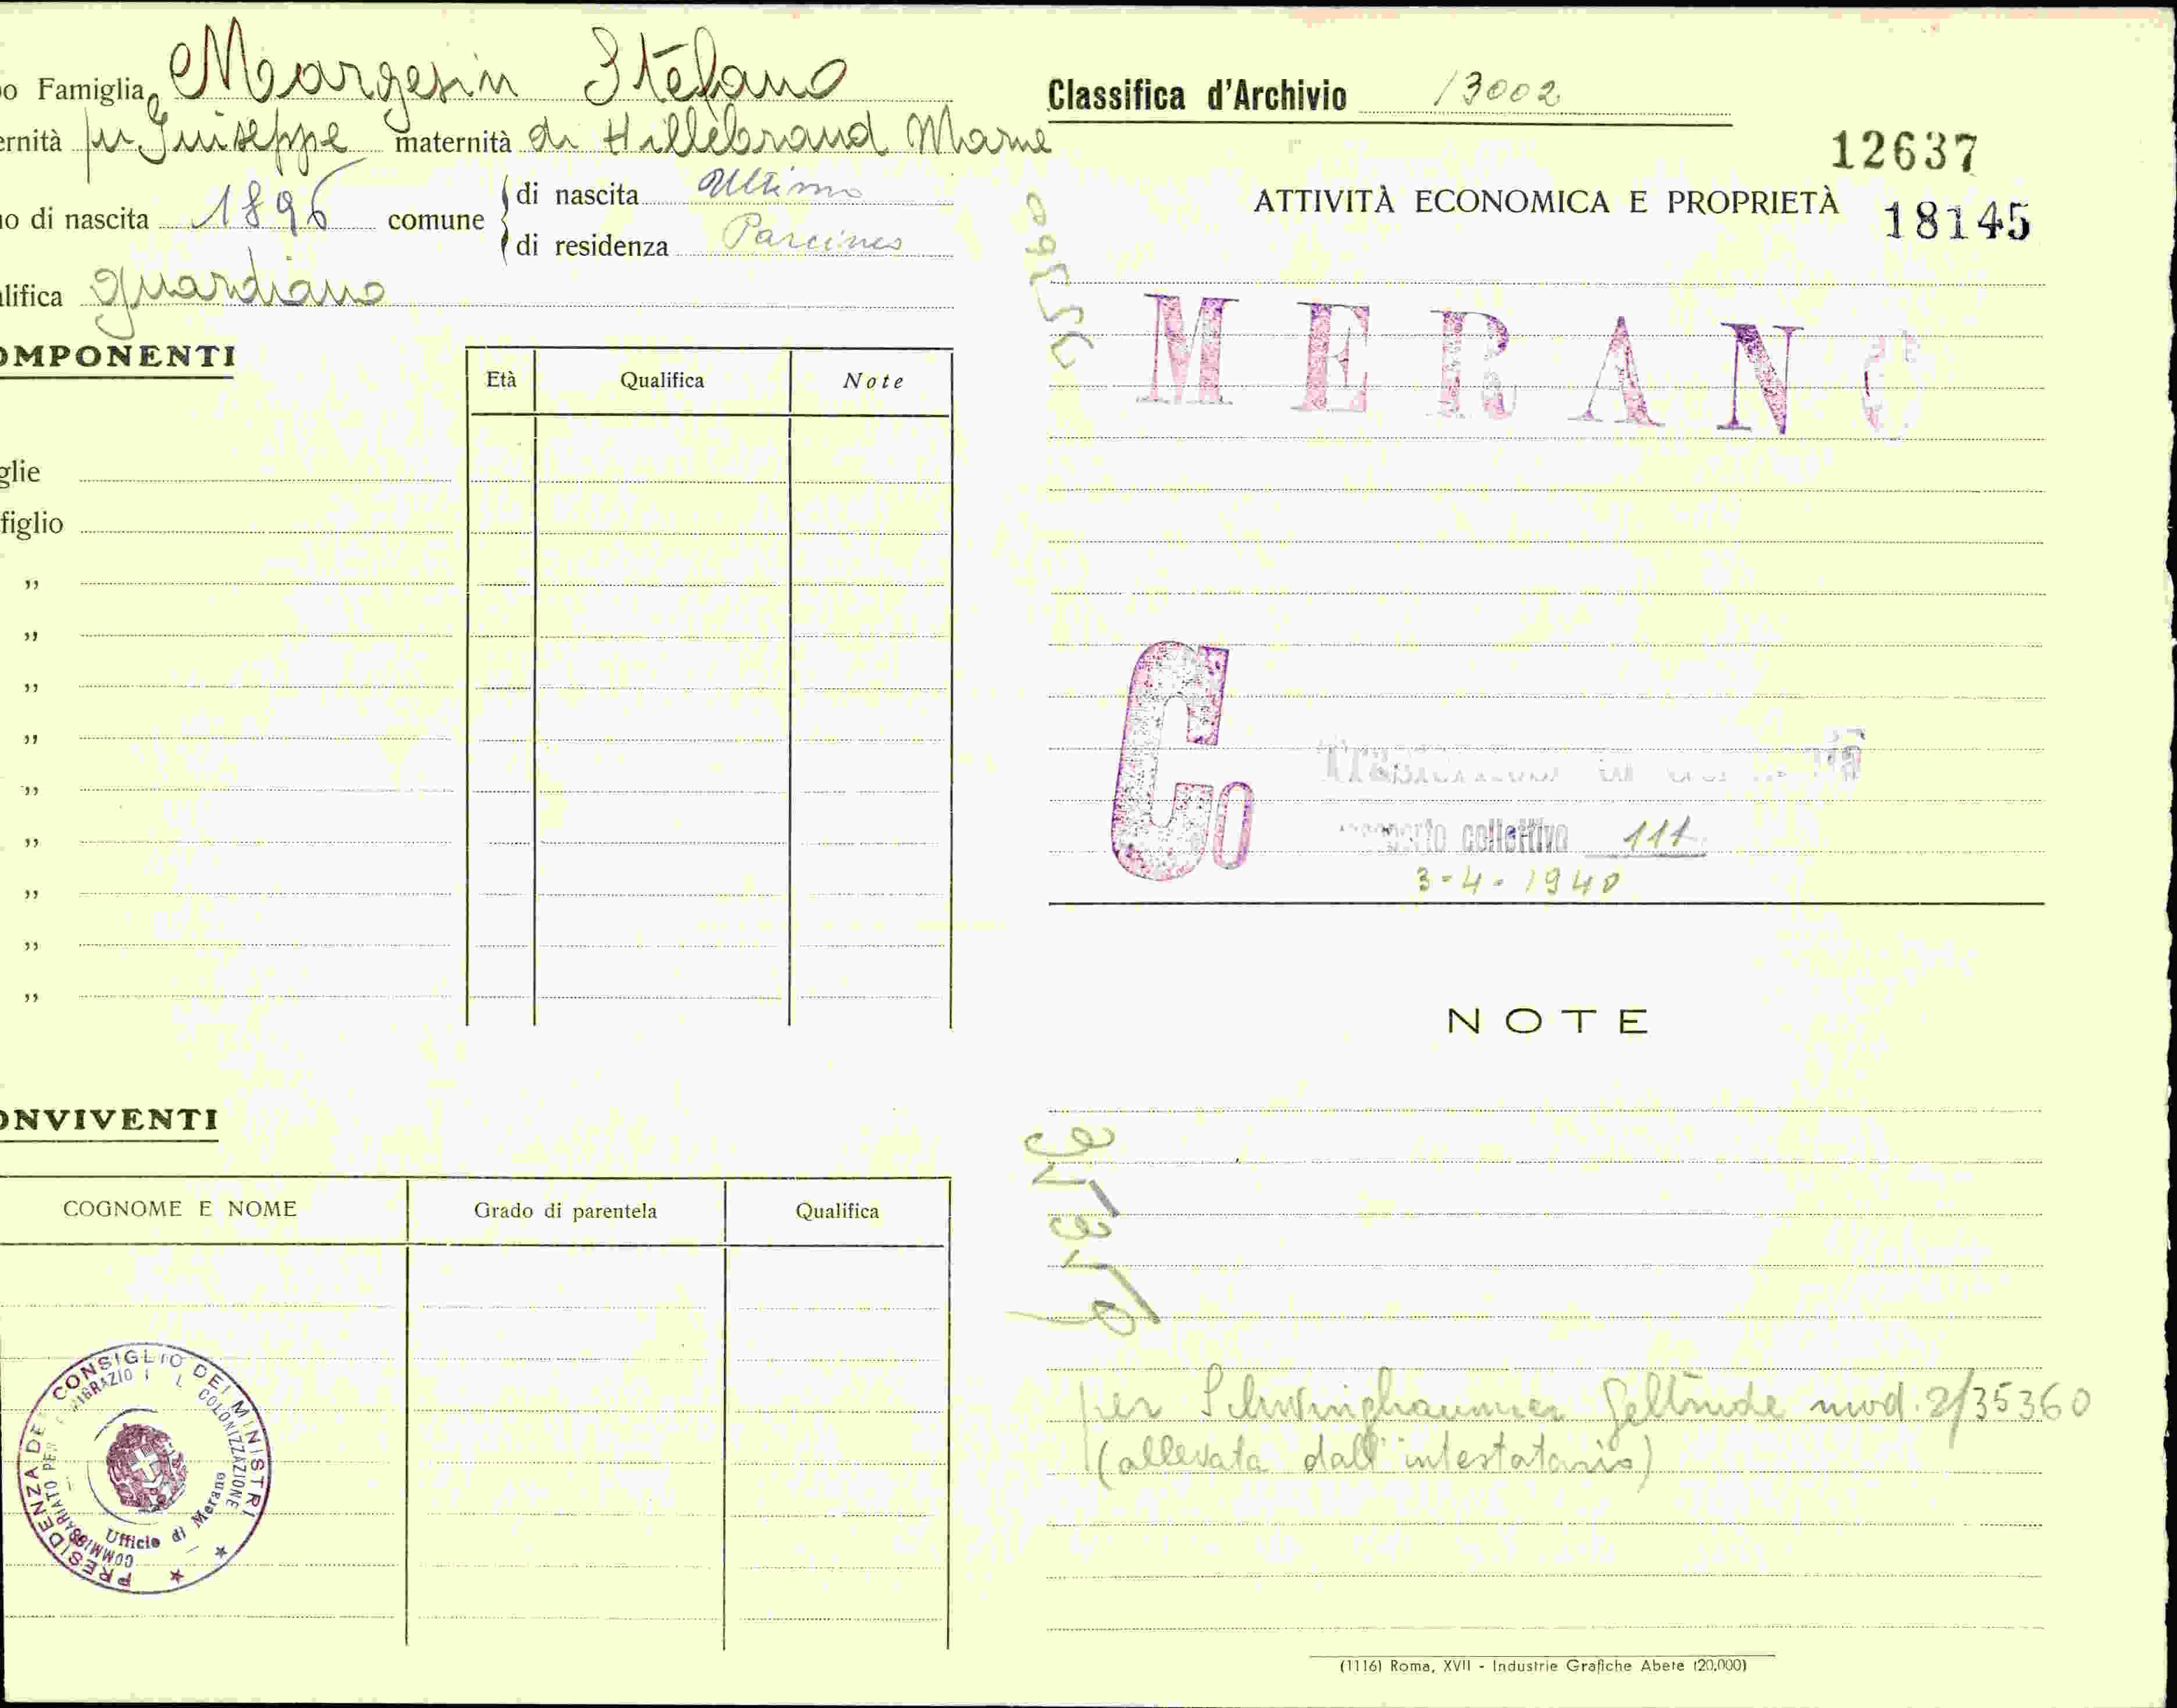 o Famiglia Margesin Stefano
ernità fu Giuseppe maternità di Hillebrand Maria
o di nascita 1896 comune
di nascita Ultimo
di residenza Parcines
lifica guardiano
OMPONENTI
Età Qualifica Note
glie
figlio
"
"
"
"
"
"
"
"
"
ONVIVENTI
COGNOME E NOME Grado di parentela Qualifica
PRESIDENZA DEL CONSIGLIO DEI MINISTRI
Ufficio di Merano
Classifica d'Archivio 13002
12637
ATTIVITÀ ECONOMICA E PROPRIETÀ 18145
MERANO
Co
collettivo 111
3-4-1940
NOTE
per Schwinghammer Geltrude mod. 2/35360
(allevata dall'intestatario)
(1116) Roma, XVII - Industrie Grafiche Abete (20.000)